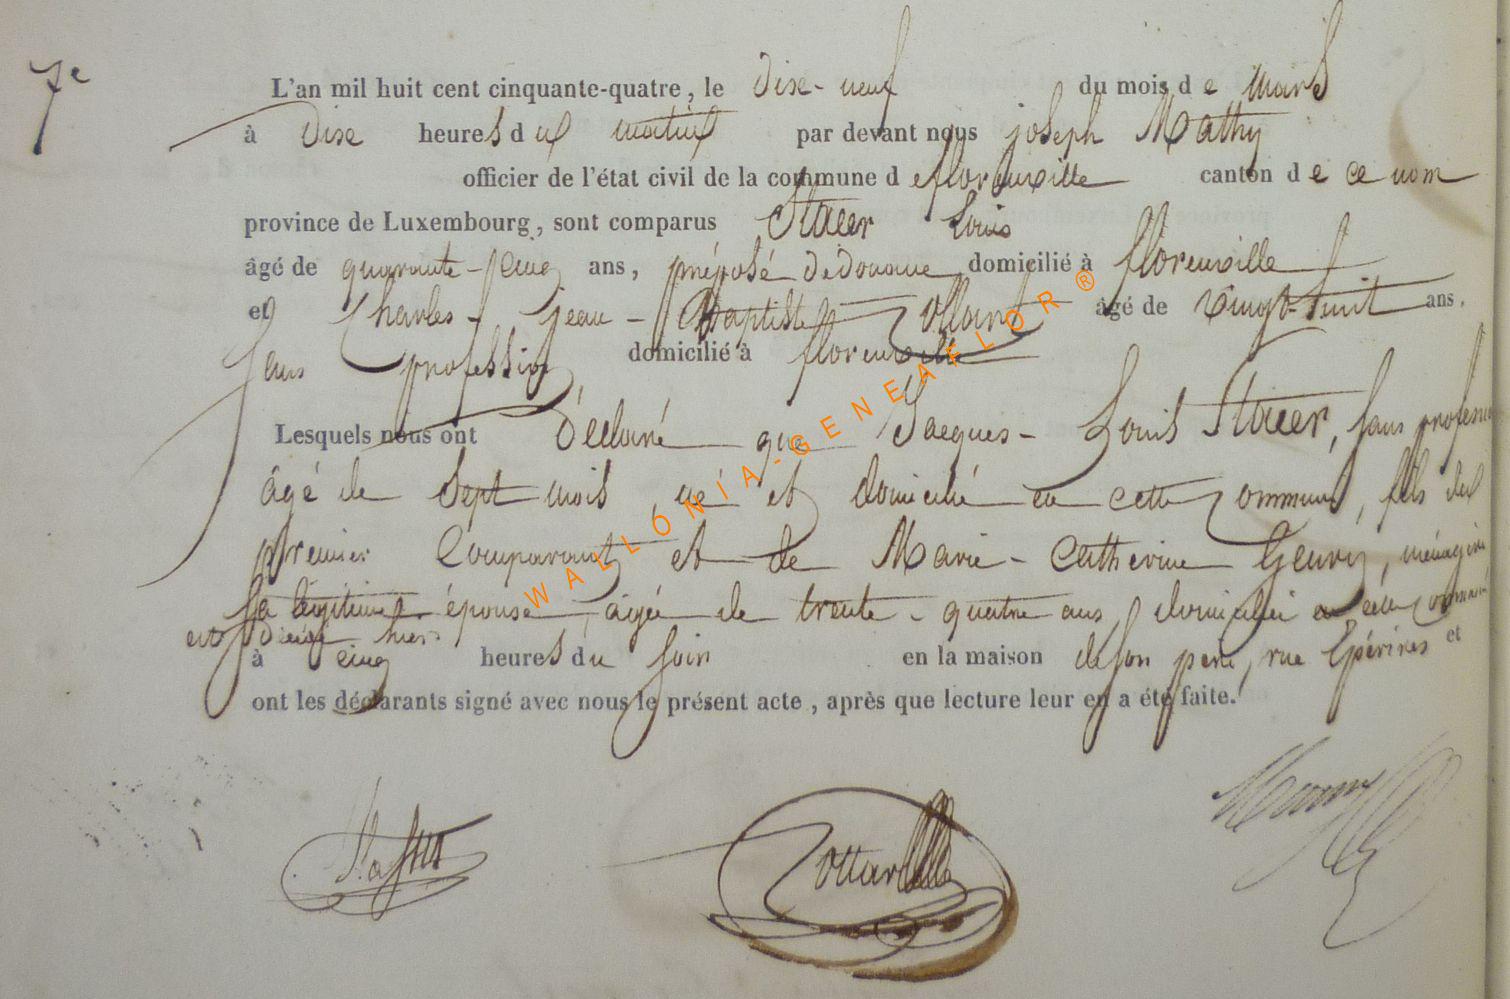 7e
L'an mil huit cent cinquante-quatre, le dixe-neuf du mois de Mars
à dixe heures du matin par devant nous joseph Mathy
officier de l'état civil de la commune de florenville canton de ce nom
province de Luxembourg, sont comparus Staeer Louis
âgé de quarante-cinq ans, préposé de douane domicilié à florenville
et Charles-jean-Baptiste Collard âgé de vingt-huit ans,
sans profession, domicilié à florenville
Lesquels nous ont déclaré que Jacques-Louis Staeer, sans profession
âgé de sept mois né et domicilié en cette commune, fils du
premier Comparant et de Marie-Catherine Henry, ménagère
sa légitime épouse, âgée de trente-quatre ans, domiciliée en cette commune
est décédé hier
à cinq heures du soir en la maison de son père, rue Epérires et
ont les déclarants signé avec nous le présent acte, après que lecture leur en a été faite.
WALLONIA-GENEAFLOR®